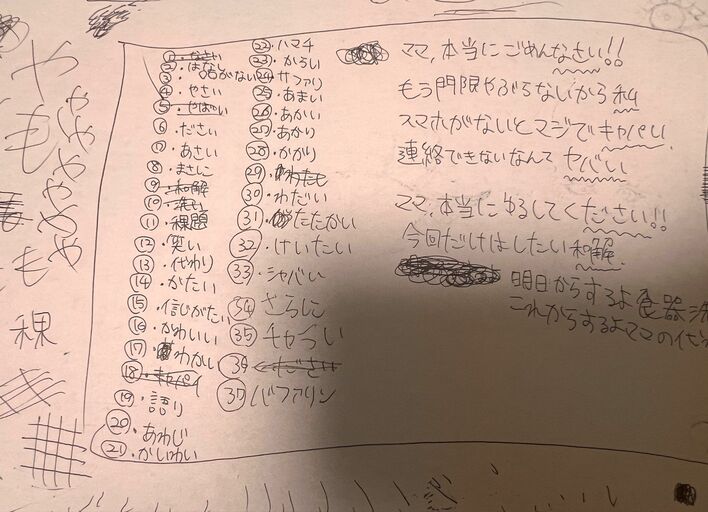 や
や
も
や
や
や
や
や
も
裸
① なさい
② はなし
③ 話がない
④ やさい
⑤ やばい
⑥ ・ださい
⑦ ・あさい
⑧ ・まさこ
⑨ ・和解
⑩ ・洗い
⑪ ・課題
⑫ ・笑い
⑬ ・代わり
⑭ ・かたい
⑮ ・信じがたい
⑯ ・かわいい
⑰ ・わかい
⑱ ・キャパい
⑲ ・語り
⑳ ・あわじ
㉑ ・かいわい
㉒ ・ハマチ
㉓ ・かるい
㉔ サファリ
㉕ ・あまい
㉖ ・あかい
㉗ ・あかり
㉘ ・かがり
㉙ ・わたし
㉚ ・わだい
㉛ ・たたかい
㉜ ・けいたい
㉝ ・シャバい
㉞ さらに
㉟ チャラい
㊱ ください
㊲ バファリン
ママ、本当にごめんなさい!!
もう門限やぶらないから私
スマホがないとマジでキャパい
連絡できないなんてヤバい
ママ、本当にゆるしてください!!
今回だけはしたい和解
明日からするよ食器洗
これからするよママの代わ